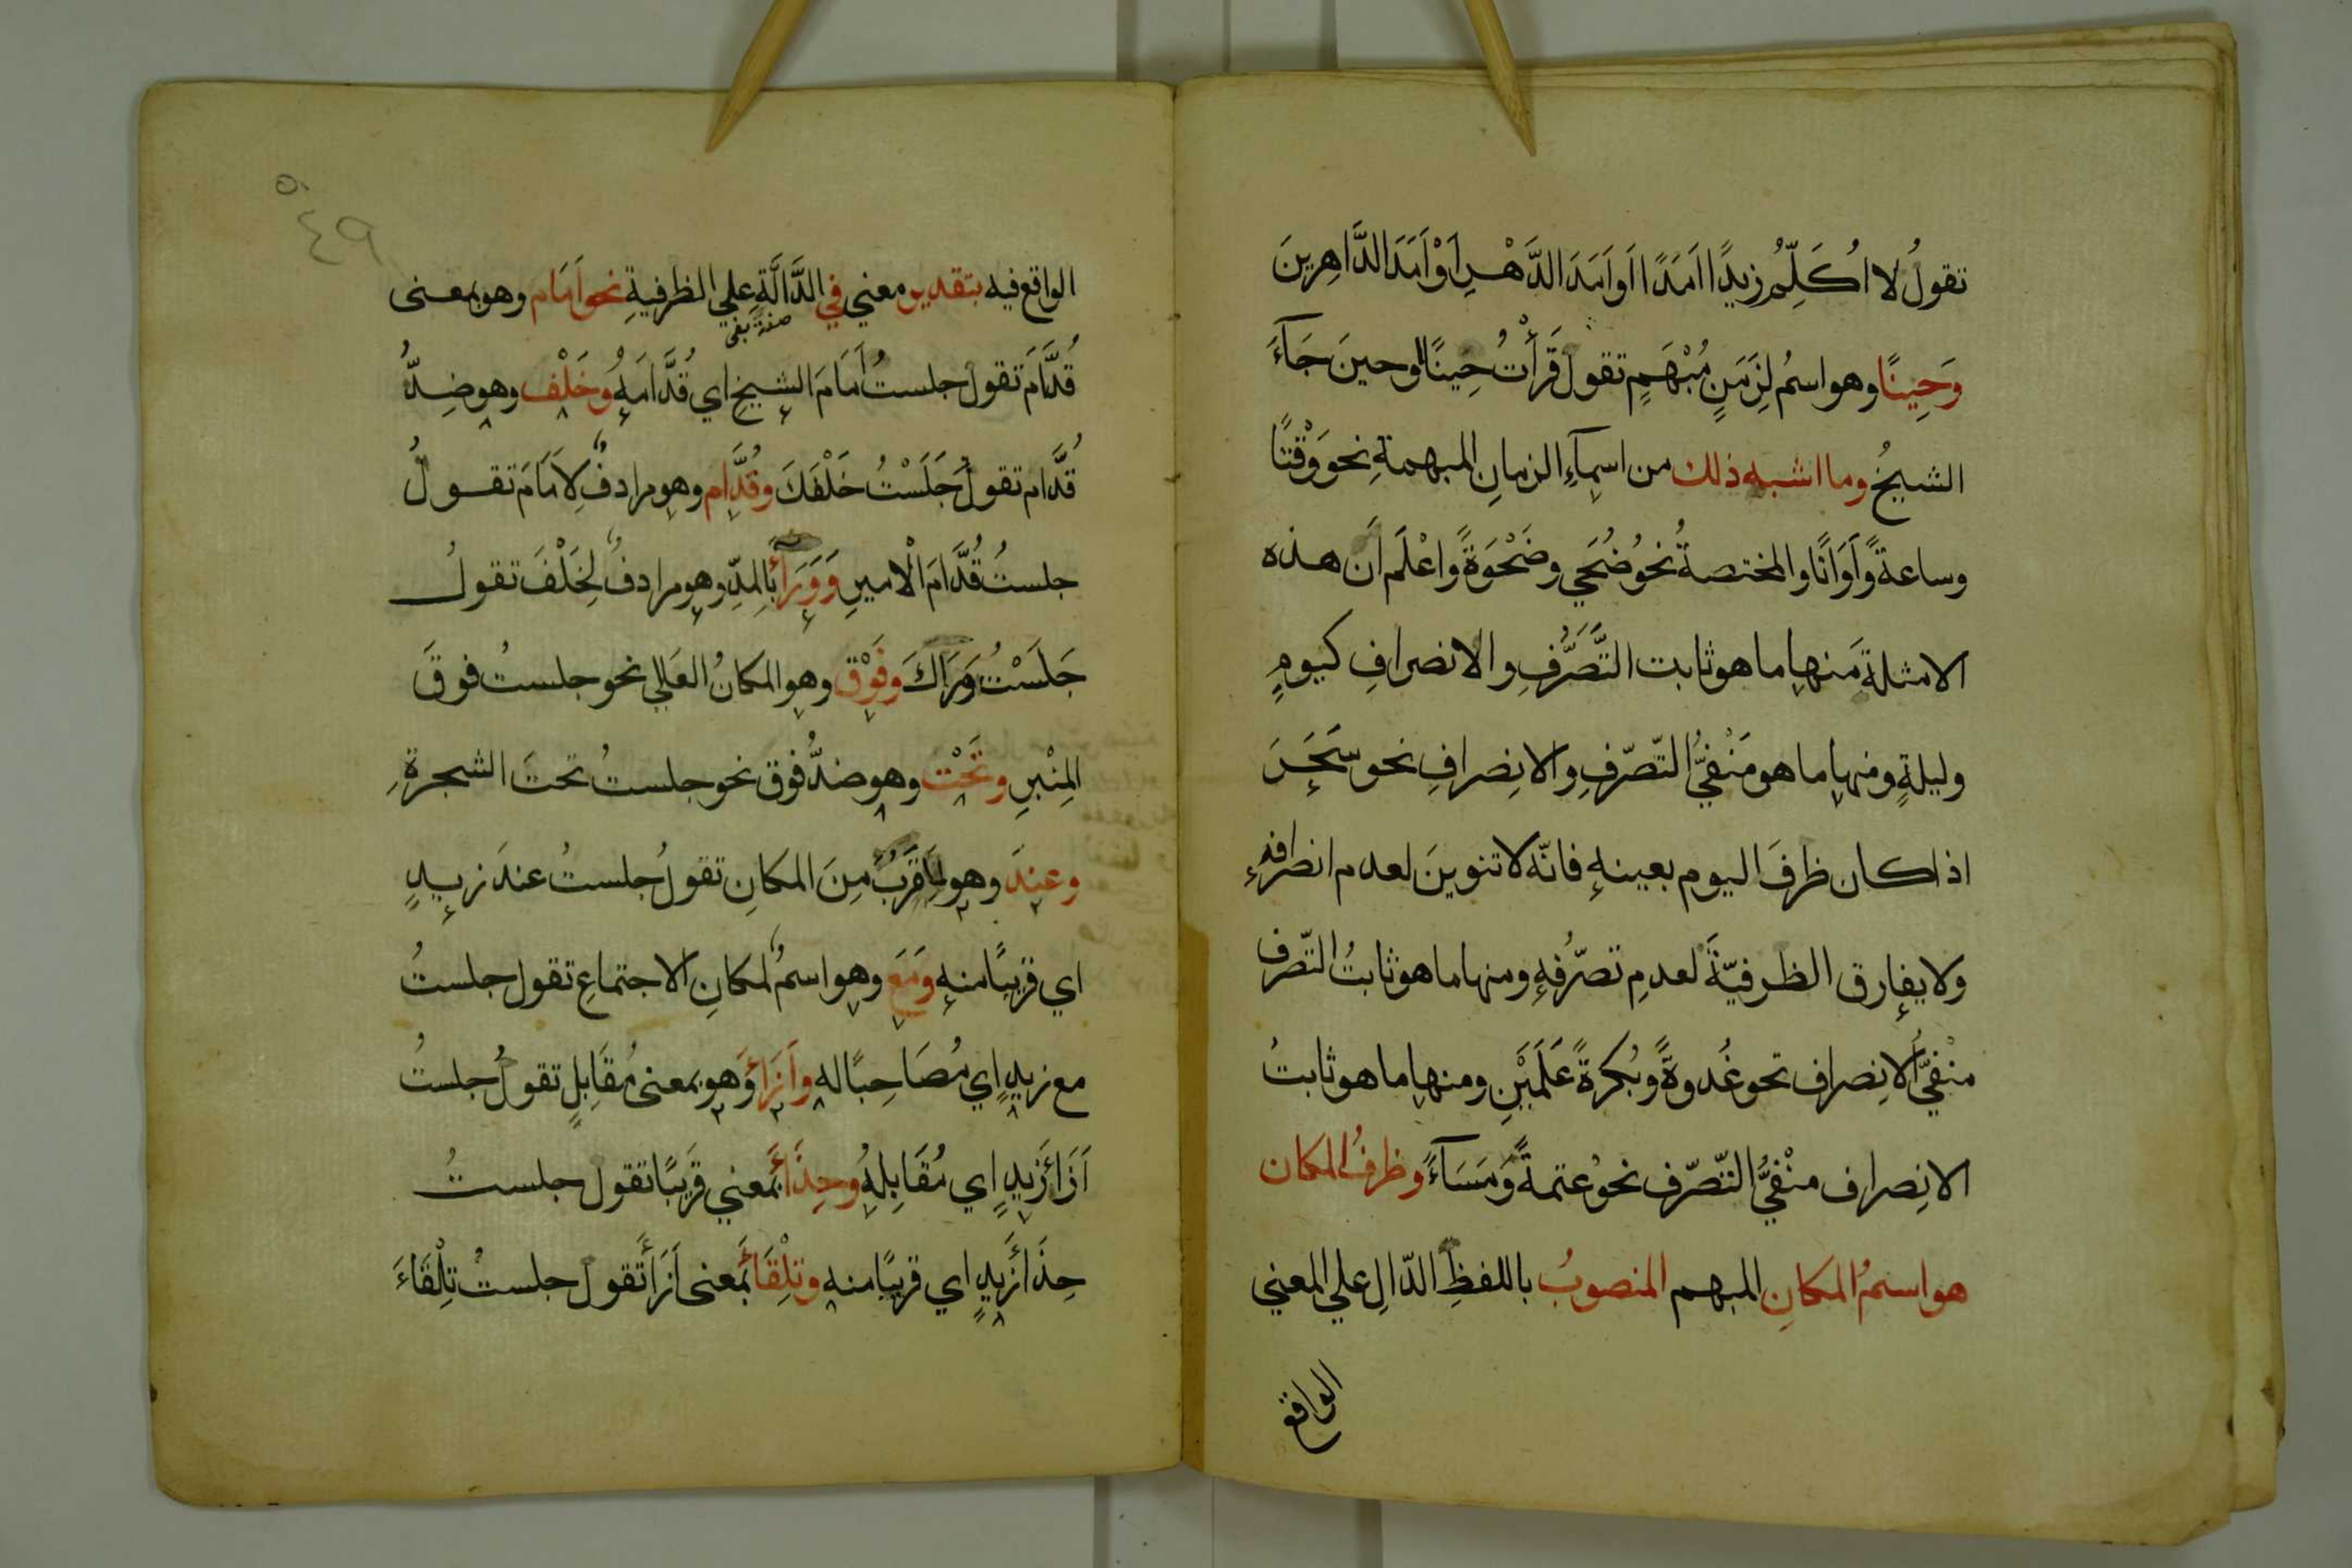 تقولُ لا اُكَلِّمُ زيدًا اَمَدًا اَو اَمَدَ الدَّهْرِ اَوْ اَمَدَ الدَّاهِرِينَ
وَحِينًا وهو اسمُ لِزَمَنٍ مُبْهَمٍ تقول قَرَأْتُ حِينًا او حينَ جَآءَ
الشيخُ وما اشبه ذلك من اسمآءِ الزمانِ المبهمةِ نحو وَقْتًا
وساعةً وَاَوَانًا والمختصةُ نحوُ ضُحَي وضَحْوَةً وَاعْلَم اَن هذه
الامثلةَ منها ما هو ثابت التَّصَرُّفِ والانصرافِ كيومٍ
وليلةٍ ومنها ما هو مَنْفِيُّ التّصّرّفِ والانِصرافِ نحو سَحَرَ
اذا كان ظرفَ اليوم بعينهِ فانّه لا تنوينَ لعدم انصرافهِ
ولا يفارق الظرفيّةَ لعدمِ تصّرُفهِ ومنها ما هو ثابتُ التّصّرف
منْفِيُّ الانِصراف نحو غُدوةً وبُكرةً عَلَمَيْنِ ومنها ما هو ثابتُ
الانِصراف منْفيُّ التّصّرّف نحوُ عتمةً وَمَسَآءً وظرفُ المكان
هو اسمُ المكانِ المبهم المنصوبُ باللفظِ الدّالِ علي المعني
الواقع
٥٠
٤٩
الواقع فيه بتقدير معني في الدَّالَّةِ علي الظرفيةِ نحو اَمَام وهو بمعنى
صفة بفى
قُدَّامَ تقول جلستُ اَمَامَ الشيخِ اي قُدَّامَهُ وخَلْف وهو ضِدُّ
قُدَّام تقولُ جَلَسْتُ خَلْفَكَ وقُدَّام وهو مرادفٌ لِاَمَامَ تقولُ
جلستُ قُدَّامَ الْاميرِ وَوَرَأَ بالمدِّ وهو مرادفٌ لِخَلْفَ تقولُ
جَلَسْتُ وَرَاكَ وفَوْق وهو المكانُ العَالِي نحو جلستُ فوقَ
المِنْبرِ وتَحْت وهو ضدُّ فوق نحو جلستُ تحتَ الشجرةِ
وعندَ وهو لِمَا قَرُبَ مِنَ المكانِ تقولُ جلستُ عندَ زيدٍ
اي قريبًا منهِ وَمَعَ وهو اسمٌ لمكانِ الاجتماعِ تقول جلستُ
مع زيدٍ اي مُصَاحِبًا له وِاَزَاَءَ وَهو بمعنى مُقَابِلٍ تقولُ جلستُ
اَزَاَءَ زَيدٍ اي مُقَابِلهُ وحِذَاَءَ بمعني قَرِيبًا تقول جلستُ
حِذَاَءَ زَيدٍ اي قريبًا منه وتِلْقَاَءَ بمعنى اَزَاَءَ تقول جلستُ تِلْقَاءَ